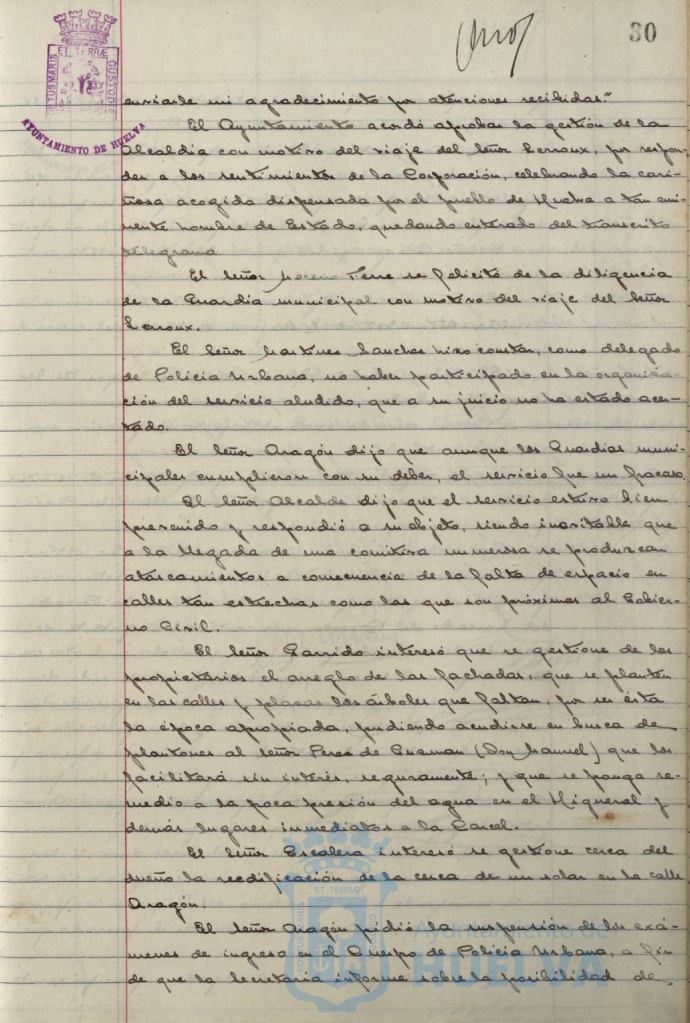 30
PORTUS MARIS ET TERRÆ CUSTODIA
AYUNTAMIENTO DE HUELVA
enviarle mi agradecimiento por atenciones recibidas."
El Ayuntamiento acordó aprobar la gestión de la
Alcaldía con motivo del viaje del Señor Lerroux, por respon-
der a los sentimientos de la Corporación, celebrando la cari-
ñosa acogida dispensada por el pueblo de Huelva a tan emi-
nente hombre de Estado, quedando enterado del transcrito
telegrama.
El Señor Moreno Feria se felicitó de la diligencia
de la Guardia municipal con motivo del viaje del Señor
Lerroux.
El Señor Martínez Sanchez hizo constar, como delegado
de Policía Urbana, no haber participado en la organiza-
ción del servicio aludido, que a su juicio no ha estado acer-
tado.
El Señor Aragón dijo que aunque los Guardias muni-
cipales cumplieron con su deber, el servicio fue un fracaso.
El Señor Alcalde dijo que el servicio estuvo bien
prevenido y respondió a su objeto, siendo inevitable que
a la llegada de una comitiva inmensa se produzcan
atascamientos a consecuencia de la falta de espacio en
calles tan estrechas como las que son próximas al Gobier-
no Civil.
El Señor Garrido interesó que se gestione de los
propietarios el arreglo de las fachadas, que se planten
en las calles y plazas los árboles que faltan, por ser ésta
la época apropiada, pudiendo acudirse en busca de
plantones al Señor Perez de Guzman (Don Manuel) que los
facilitará sin interés, seguramente; y que se ponga re-
medio a la poca presión del agua en el Higueral y
demás lugares inmediatos a la Carcel.
El Señor Escalera interesó se gestione cerca del
dueño la reedificación de la cerca de un solar en la calle
Aragón.
El Señor Aragón pidió la suspensión de los exá-
menes de ingreso en el Cuerpo de Policía Urbana, a fin
de que la Secretaría informe sobre la posibilidad de
ET TERRÆ
Ayuntamiento de
HUELVA